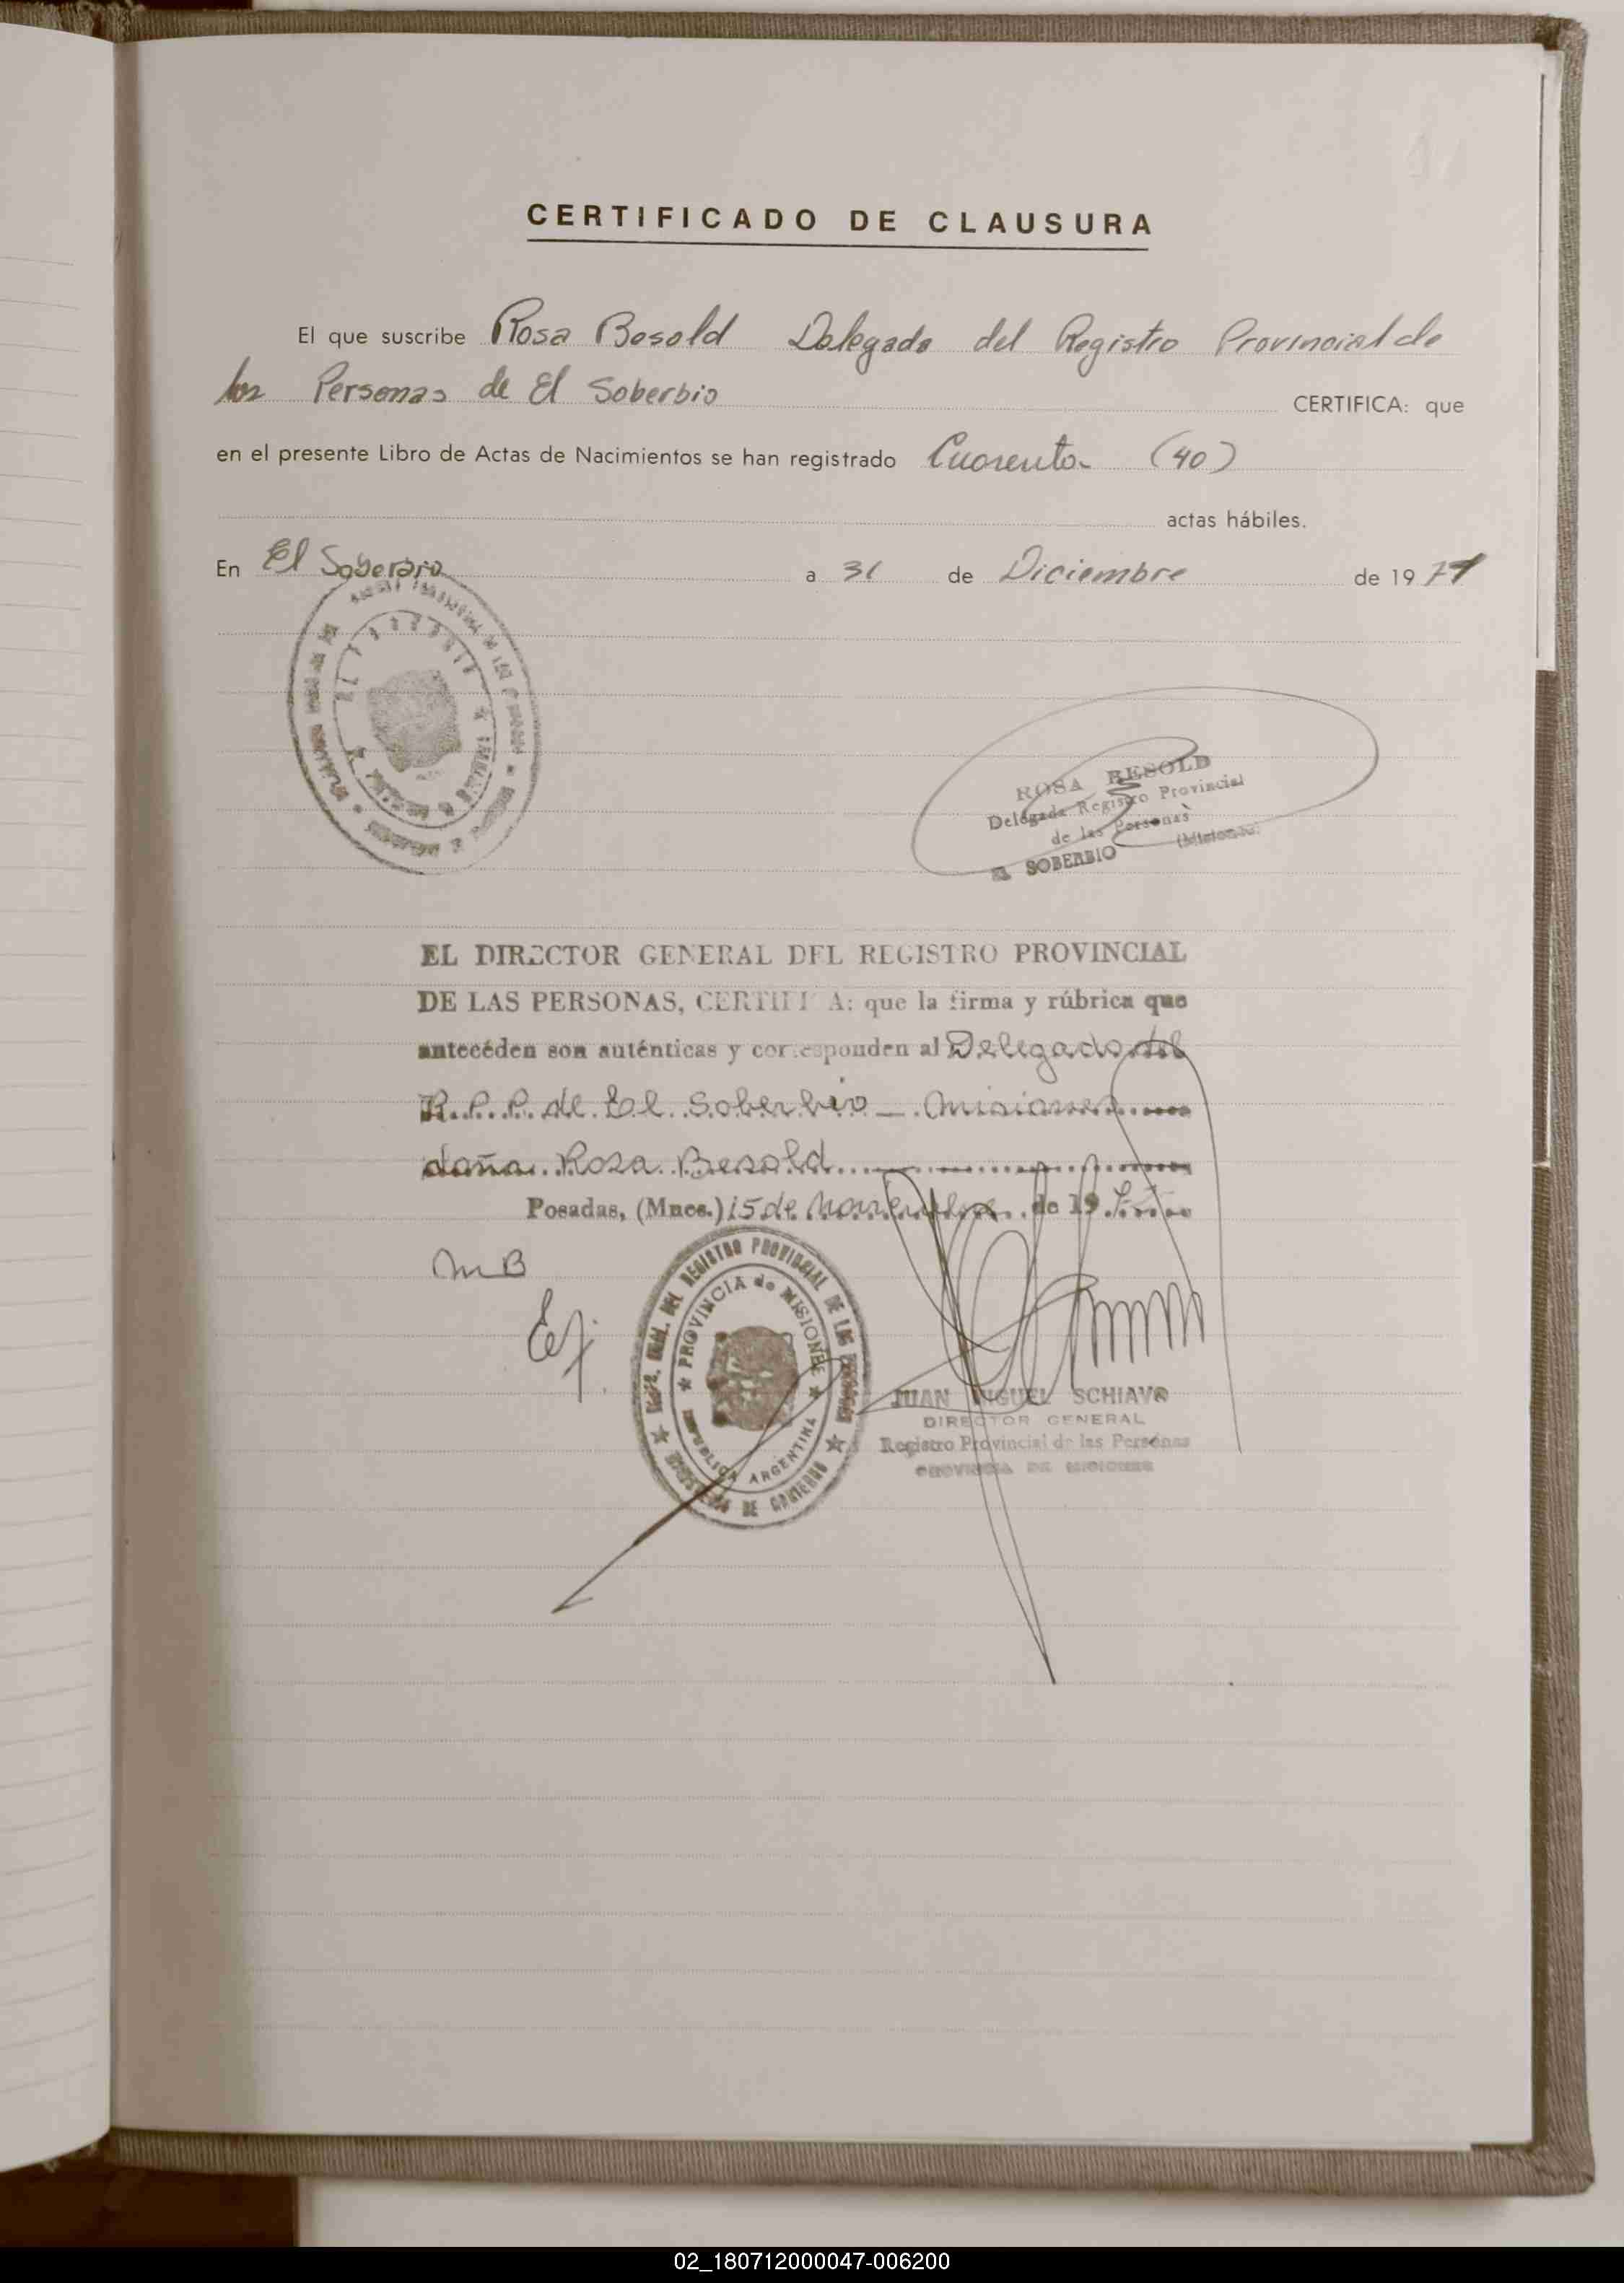 CERTIFICADO DE CLAUSURA
El que suscribe Rosa Besold Delegada del Registro Provincial de
las Personas de El Soberbio CERTIFICA: que
en el presente Libro de Actas de Nacimientos se han registrado Cuarenta (40)
actas hábiles.
En El Soberbio a 31 de Diciembre de 19
ROSA BESOLD
Delegada Registro Provincial
de las Personas
EL SOBERBIO (Misiones)
EL DIRECTOR GENERAL DEL REGISTRO PROVINCIAL
DE LAS PERSONAS, CERTIFICA: que la firma y rúbrica que
anteceden son auténticas y corresponden al Delegado del
R.P.P. de El Soberbio - Misiones
doña Rosa Besold
Posadas, (Mnes.) 15 de Noviembre de 19
MB
DEL REGISTRO PROVINCIAL DE LAS PERSONAS
PROVINCIA de MISIONES
REPUBLICA ARGENTINA
MINISTERIO DE GOBIERNO
JUAN MIGUEL SCHIAVO
DIRECTOR GENERAL
Registro Provincial de las Personas
PROVINCIA DE MISIONES
02_180712000047-006200